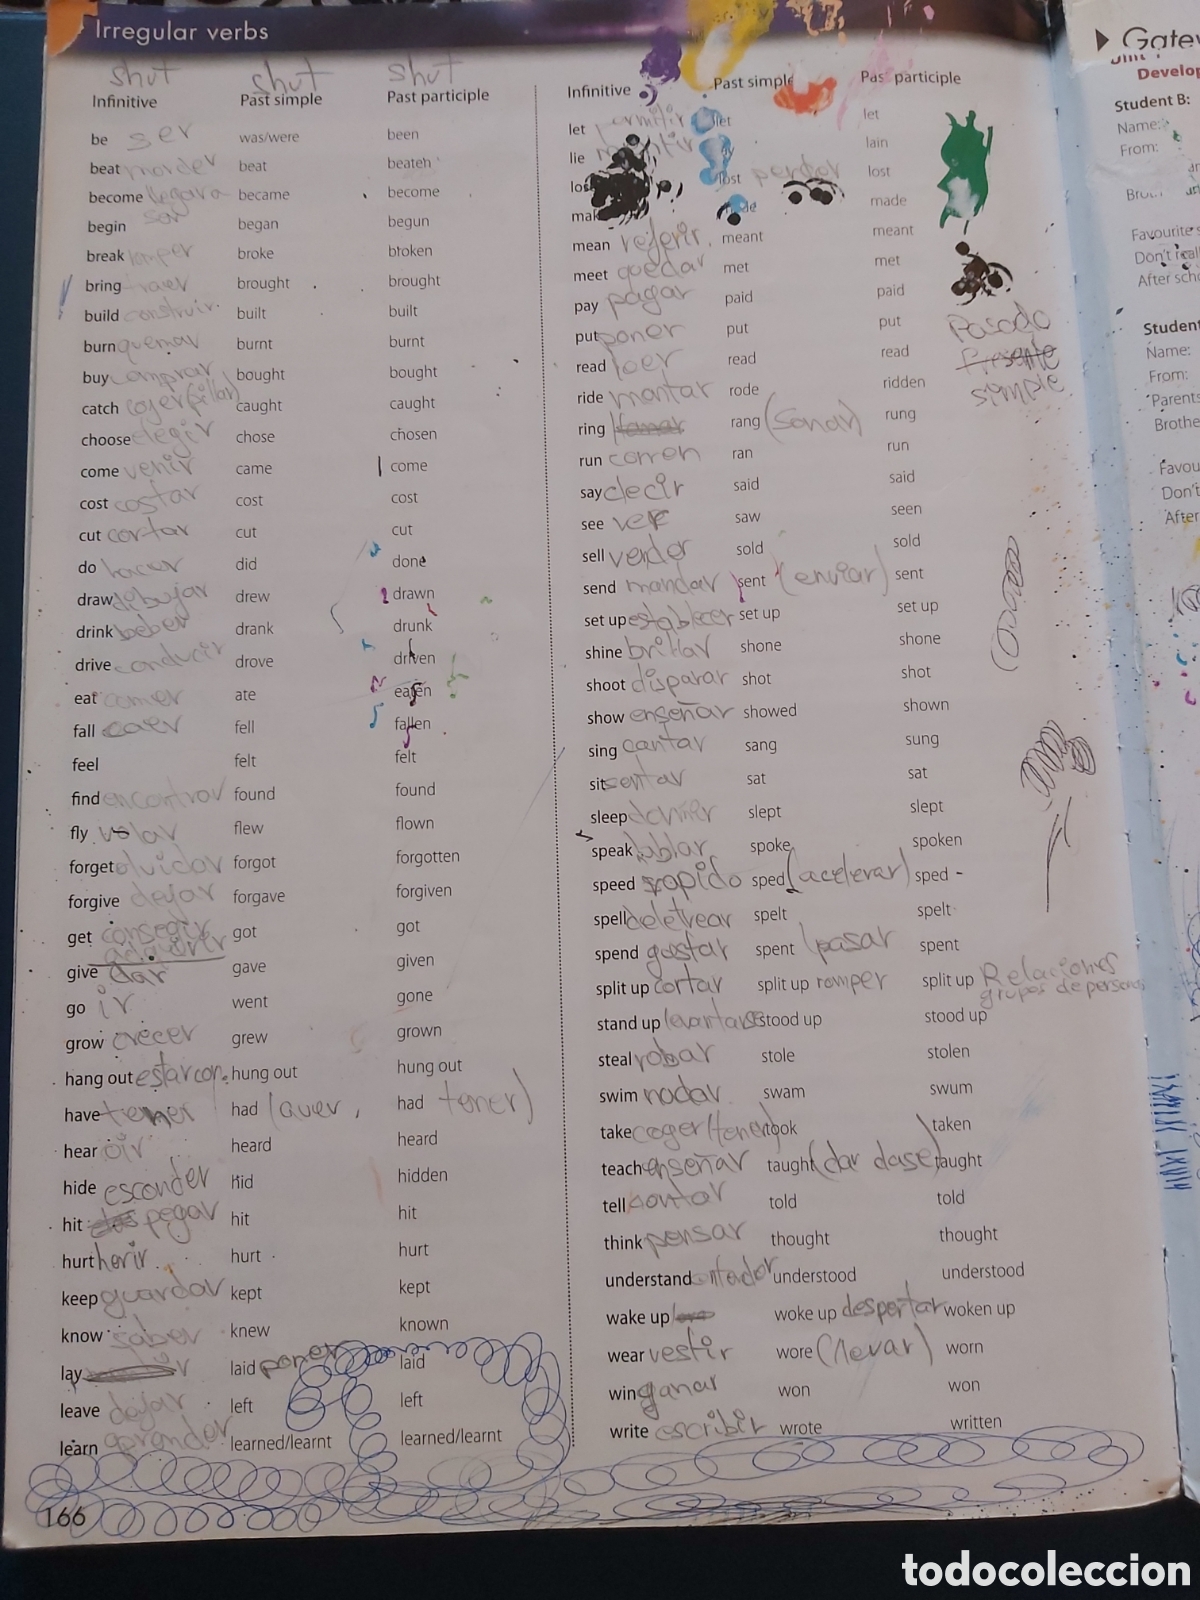 Irregular verbs
shut shut shut
Infinitive Past simple Past participle
be ser was/were been
beat morder beat beaten
become llegar a became become
ser
begin began begun
break romper broke broken
bring traer brought brought
build construir built built
burn quemar burnt burnt
buy comprar bought bought
catch cojer (pillar) caught caught
choose elegir chose chosen
come venir came come
cost costar cost cost
cut cortar cut cut
do hacer did done
draw dibujar drew drawn
drink beber drank drunk
drive conducir drove driven
eat comer ate eaten
fall caer fell fallen
feel felt felt
find encontrar found found
fly volar flew flown
forget olvidar forgot forgotten
forgive dejar forgave forgiven
get consegir got got
adquirir
give dar gave given
go ir went gone
grow crecer grew grown
hang out estar con hung out hung out
have tener had (aver, had tener)
hear oir heard heard
hide esconder hid hidden
hit pegar hit hit
hurt herir hurt hurt
keep guardar kept kept
know saber knew known
lay laid poner laid
leave dejar left left
learn aprender learned/learnt learned/learnt
166
Infinitive Past simple Past participle
let permitir let let
lie mentir lay lain
lost perder lost
made made
mean referir meant meant
meet quedar met met
pay pagar paid paid
put poner put put
read leer read read
ride montar rode ridden
ring rang (sonar) rung
run corren ran run
say decir said said
see ver saw seen
sell vender sold sold
send mandar sent (enviar) sent
set up establecer set up set up
shine brillar shone shone
shoot disparar shot shot
show enseñar showed shown
sing cantar sang sung
sit sentar sat sat
sleep dormir slept slept
speak ablar spoke spoken
speed rapido sped (acelerar) sped -
spell deletrear spelt spelt
spend gastar spent (pasar spent
split up cortar split up romper split up Relaciones
grupos de personas
stand up levantarse stood up stood up
steal robar stole stolen
swim nadar swam swum
take coger (tener) took taken
teach enseñar taught (dar clase) taught
tell contar told told
think pensar thought thought
understand entender understood understood
wake up woke up despertar woken up
wear vestir wore (llevar) worn
win ganar won won
write escribir wrote written
Pasado
Presente
simple
Gatew
Develop
Student B:
Name:
From:
Favourite s
Don't reall
After scho
Student
Name:
From:
Parents
Brothe
Favou
Don't
After
todocoleccion